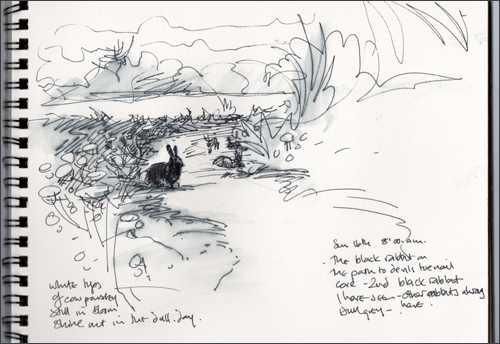 white tops
of cow parsley
still in bloom
shine out in the dull day.
Sun 16th 8:00 a.m.
The black rabbit on
the path to devils toenail
cove - 2nd black rabbit
I have seen - other rabbits along
here
dull grey -